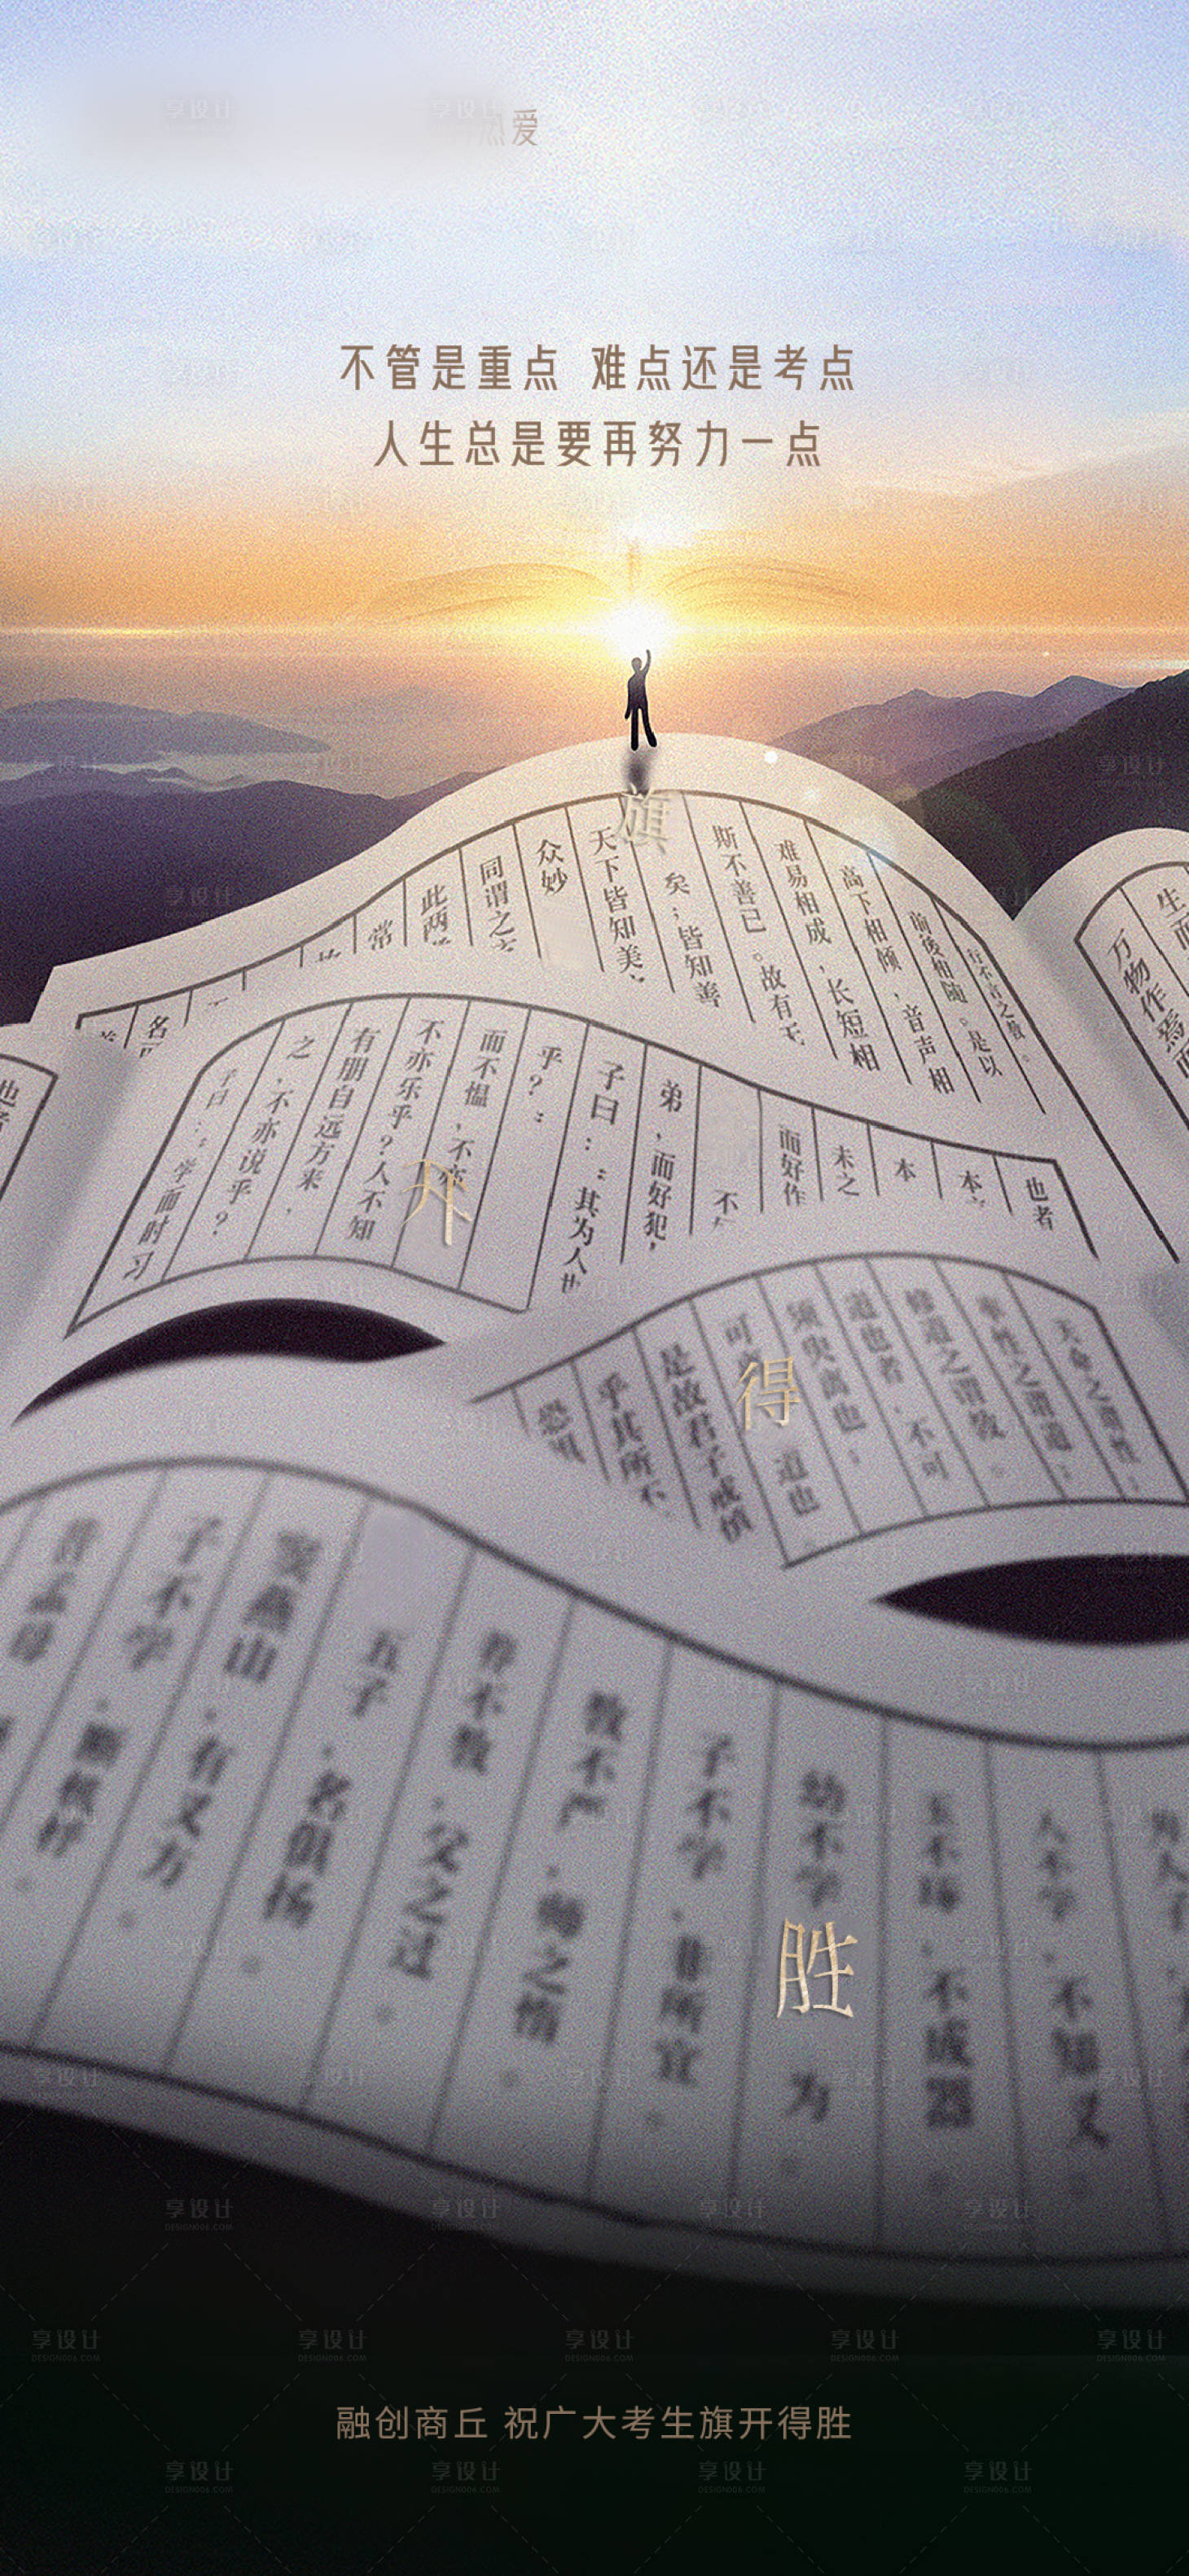 爱
不管是重点 难点还是考点
人生总是要再努力一点
旗
行不言之教。
前後相随。是以
高下相倾,音声相
难易相成,长短相
斯不善已。故有无
矣;皆知善
天下皆知美
众妙
同谓之
此两
常
名
生而
万物作焉而
也者
子曰:学而时习
之,不亦说乎?
有朋自远方来,
不亦乐乎?人不知
而不愠,不亦
乎?:
子曰::其为人也
弟,而好犯,
不
而好作
未之
本
本
也者
开
天命之谓性;
率性之谓道;
修道之谓教。
道也者,不可
须臾离也;
可离
道也
是故君子戒慎
乎其所不
恐惧
得
昔孟母
,断机杼
子不学
窦燕山
,有义方
五子
,名俱扬
养不教
,父之过
教不严
,师之惰
子不学
,非所宜
幼不学
为
玉不琢
,不成器
人不学
,不知义
为人子
胜
融创商丘 祝广大考生旗开得胜
享设计
DESIGN006.COM